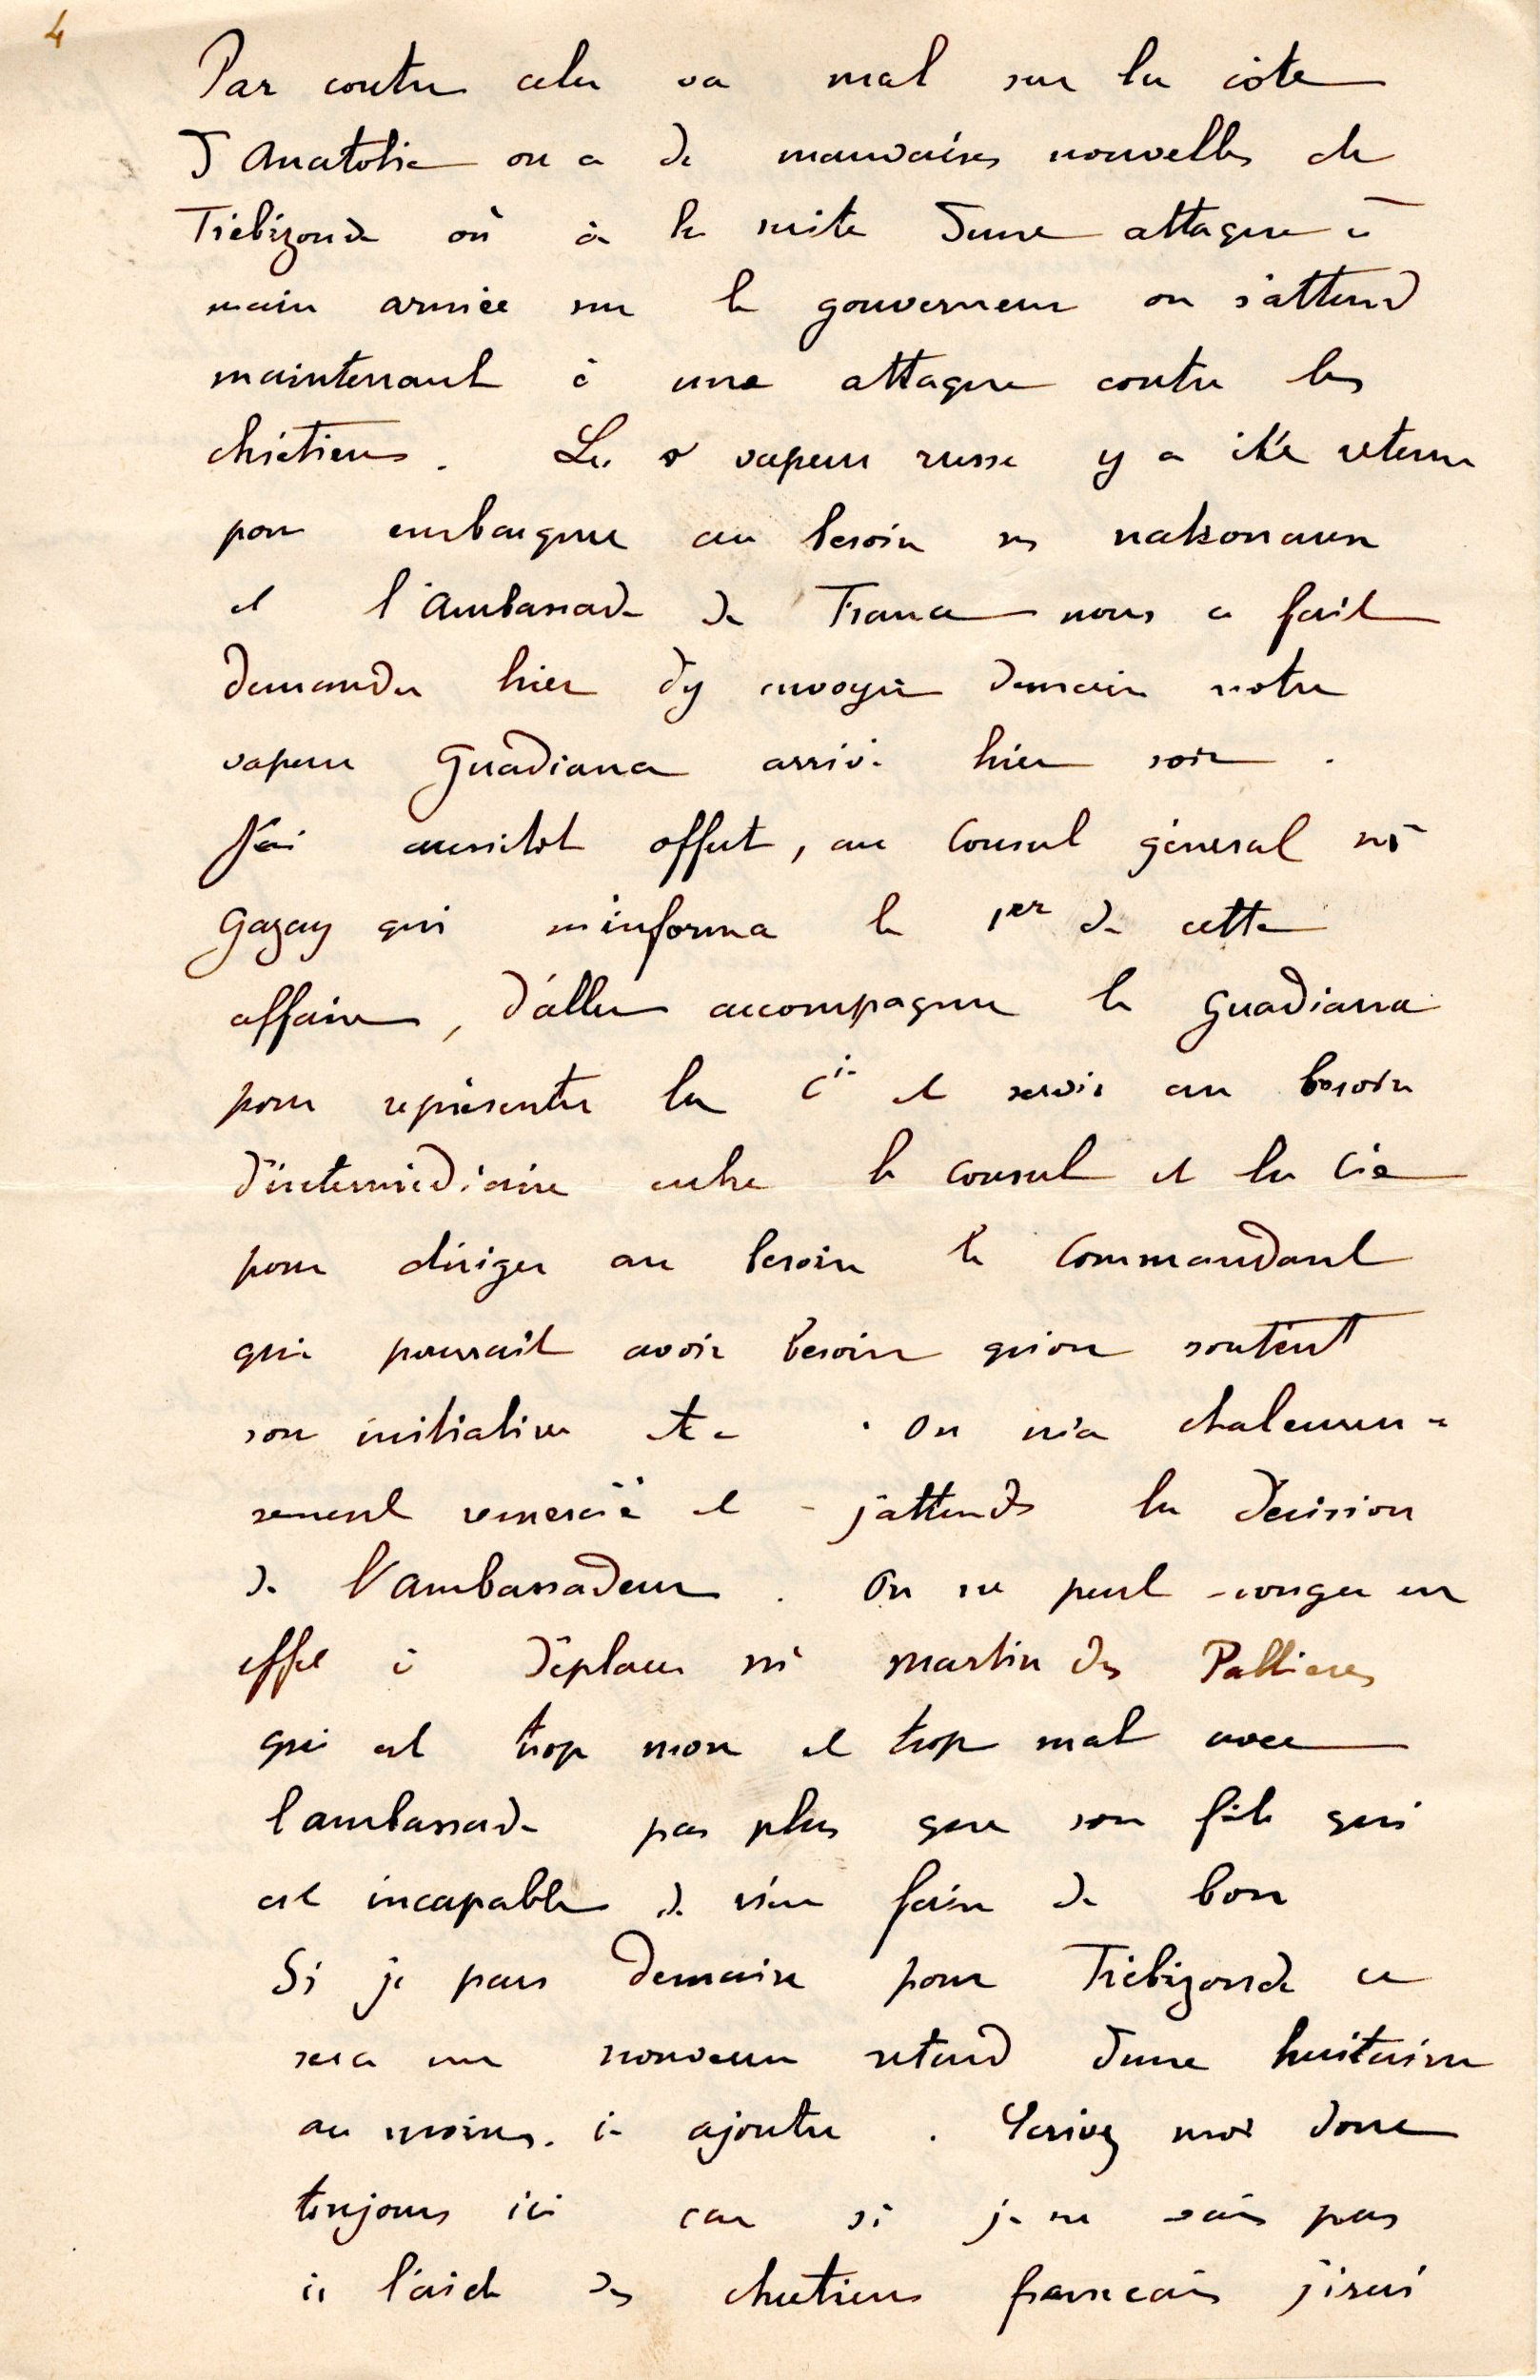 4
Par contre cela va mal sur la côte
d'Anatolie on a de mauvaises nouvelles de
Trébizonde où à la suite d'une attaque à
main armée sur le gouverneur on s'attend
maintenant à une attaque contre les
chrétiens. Le vapeur russe y a été retenu
pour embarquer au besoin ses nationaux
et l'Ambassade de France nous a fait
demander hier d'y envoyer demain notre
vapeur Guadiana arrivé hier soir.
J'ai aussitôt offert, au Consul général Mr
Gazay qui m'informa le 1er de cette
affaire, d'aller accompagner le Guadiana
pour représenter la Cie et servir au besoin
d'intermédiaire entre le consul et la Cie
pour diriger au besoin le Commandant
qui pourrait avoir besoin qu'on soutint
son initiative etc. On m'a chaleureu-
sement remercié et j'attends la décision
de l'Ambassadeur. On ne peut songer en
effet à déplacer Mr Martin des Pallieres
qui est trop mou et trop mal avec
l'ambassade pas plus que son fils qui
est incapable de rien faire de bon
Si je pars demain pour Trébizonde ce
sera un nouveau retard d'une huitaine
au moins à ajouter. Ecrivez moi donc
toujours ici car si je ne vais pas
à l'aide des chretiens francais j'irai